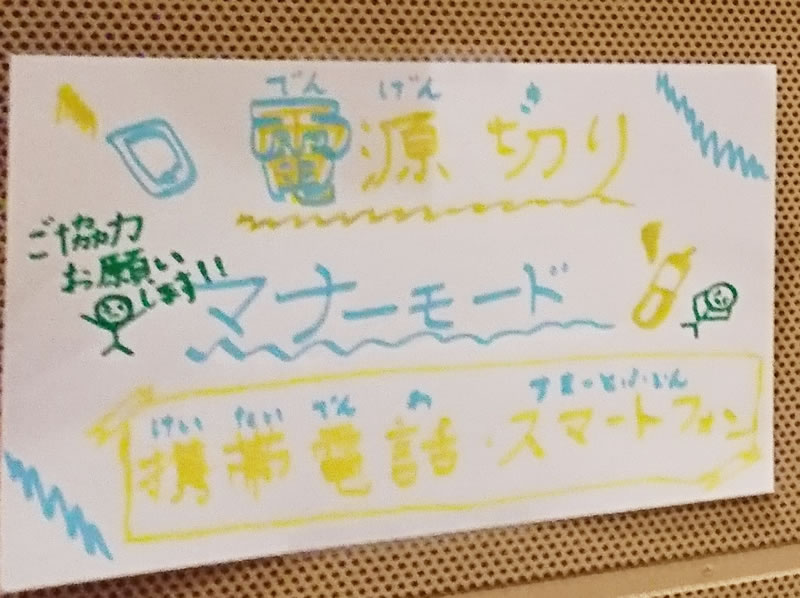 でんげん
電源切り
ご協力
お願い
します!!
マナーモード
けいたいでんわ すまーとふぉん
携帯電話・スマートフォン